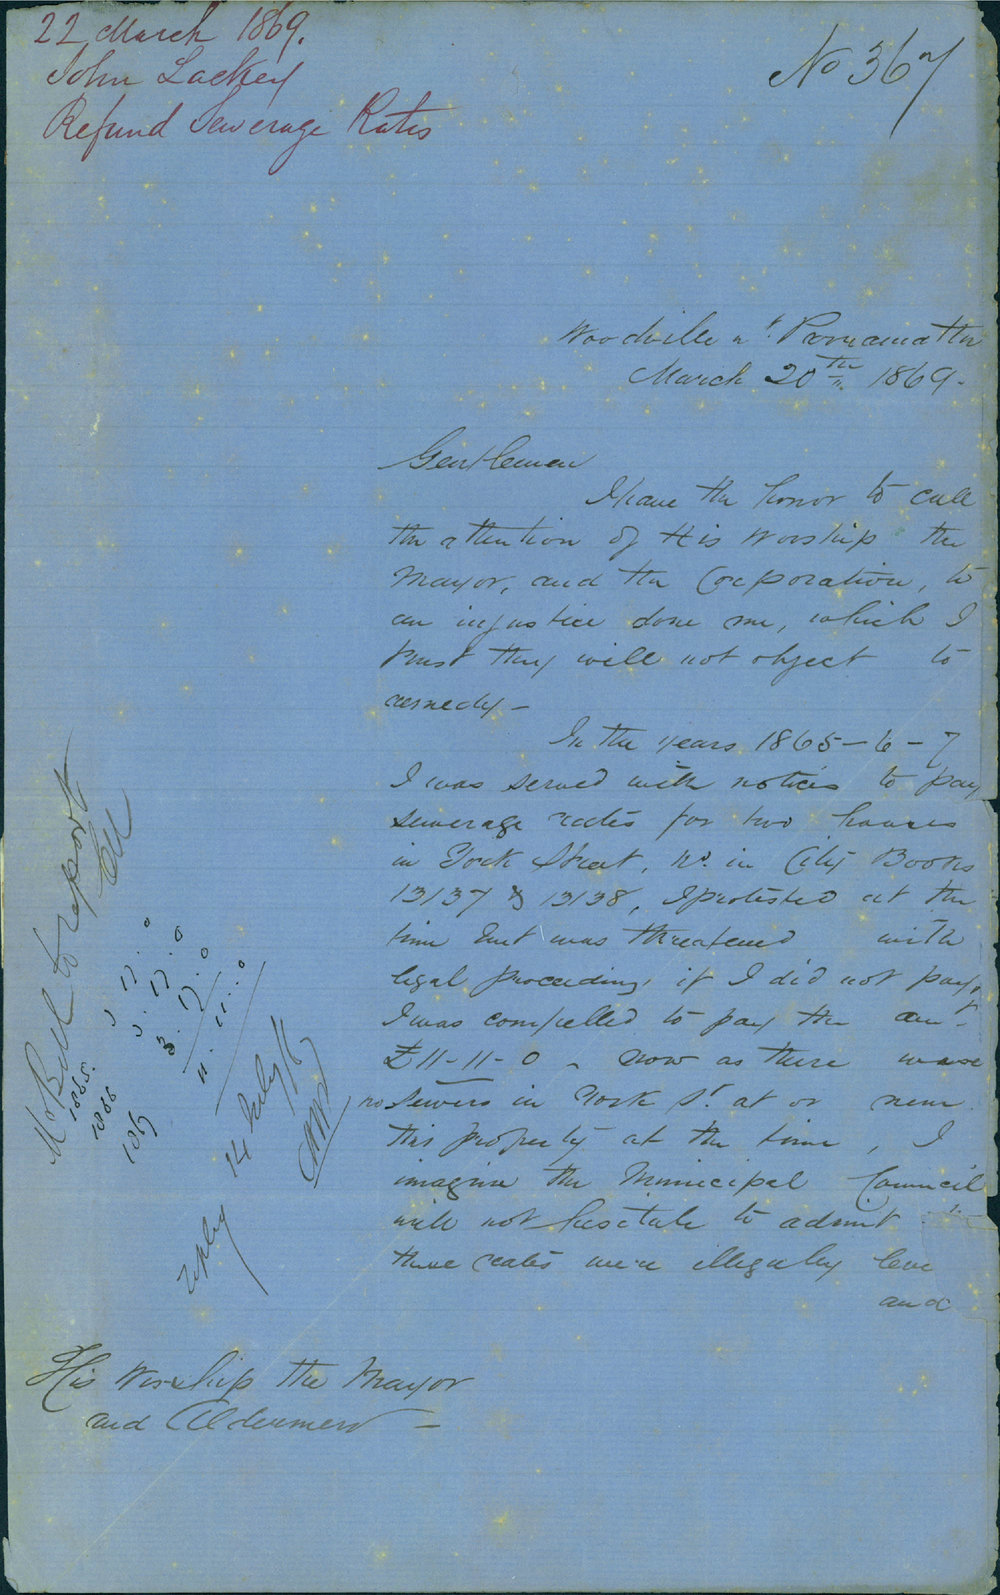 22 March 1869.
John Lackey
Refund Sewerage Rates
No 367
Woodville nr. Parramatta
March 20th 1869.
Gentlemen
I have the honor to call
the attention of His Worship the
Mayor, and the Corporation, to
an injustice done me, which I
trust they will not object to
remedy -
In the years 1865-6-7
I was served with notices to pay
sewerage rates for two houses
in York Street, No. in City Books
13137 & 13138, I protested at the
time but was threatened with
legal proceedings if I did not pay,
I was compelled to pay the amt.
£11-11-0 - now as there was
no sewers in York St. at or near
this property at the time, I
imagine the Municipal Council
will not hesitate to admit
these rates were illegally
and
His Worship the Mayor
and Aldermen -
Mr Bell to report
1865. 3 17. 0
1866 3. 17. 0
1867 3. 17. 0
11. 11. 0
reply 14 July